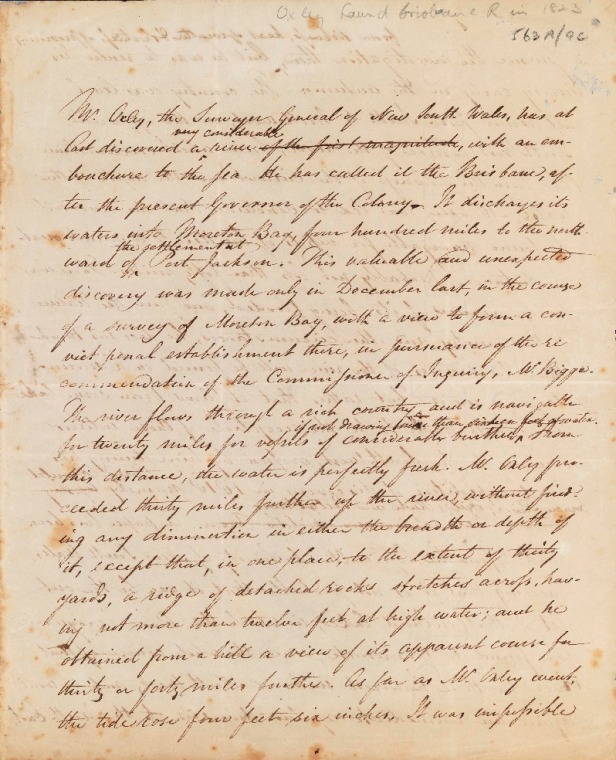 Oxley found Brisbane R in 1823
563A/9c
Mr. Oxley, the Surveyor General of New South Wales, has at
very considerable
last discovered a river of the first magnitude, with an em-
bouchure to the sea. He has called it the Brisbane, af-
ter the present Governor of the Colony. It discharges its
waters into Moreton Bay, four hundred miles to the north-
the settlement at
ward of Port Jackson. This valuable and unexpected
discovery was made only in December last, in the course
of a survey of Moreton Bay, with a view to form a con-
vict penal establishment there, in pursuance of the re
commendation of the Commissioner of Inquiry, Mr Bigge.
The river flows through a rich country, and is navigable
if not drawing more than sixteen feet of water.
for twenty miles for vessels of considerable burthen, From
this distance, the water is perfectly fresh. Mr. Oxley pro-
ceeded thirty miles further up the river, without find-
ing any diminution in either the breadth or depth of
it, except that, in one place, to the extent of thirty
yards, a ridge of detached rocks stretches across, hav-
ing not more than twelve feet at high water; and he
obtained from a hill a view of its apparent course for
thirty or forty miles further. As far as Mr. Oxley went
the tide rose four feet six inches. It was impossible